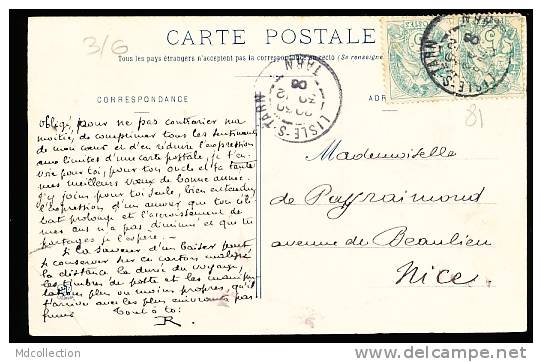 3/6
CARTE POSTALE
Tous les pays étrangers n'acceptent pas la correspondance au recto (Se renseigner
CORRESPONDANCE
ADR
LISLE-S-TARN
TARN
08
81
Obligé, pour ne pas contrarier ma
moitié, de comprimer tous les sentiments
de mon cœur et d'en réduire l'expression
aux limites d'une carte postale, je t'en-
voie pour toi, pour ton oncle et ta tante
mes meilleurs vœux de bonne année.
J'y joins pour toi seule, bien entendu,
l'expression d'un amour que ton
prolongé et l'accroissement de
mes ans n'a pas diminué et que tu
partages je l'espère.
La saveur d'un baiser peut
se conserver sur ce carton malgré
la distance, la durée du voyage,
les timbres de poste et les manipu-
lations plus ou moins propres, qu'il
t'arrive avec les plus
Tout à toi
R.
Mademoiselle
de Puyraimond
avenue de Beaulieu
Nice
MDCollection
delcampe.net